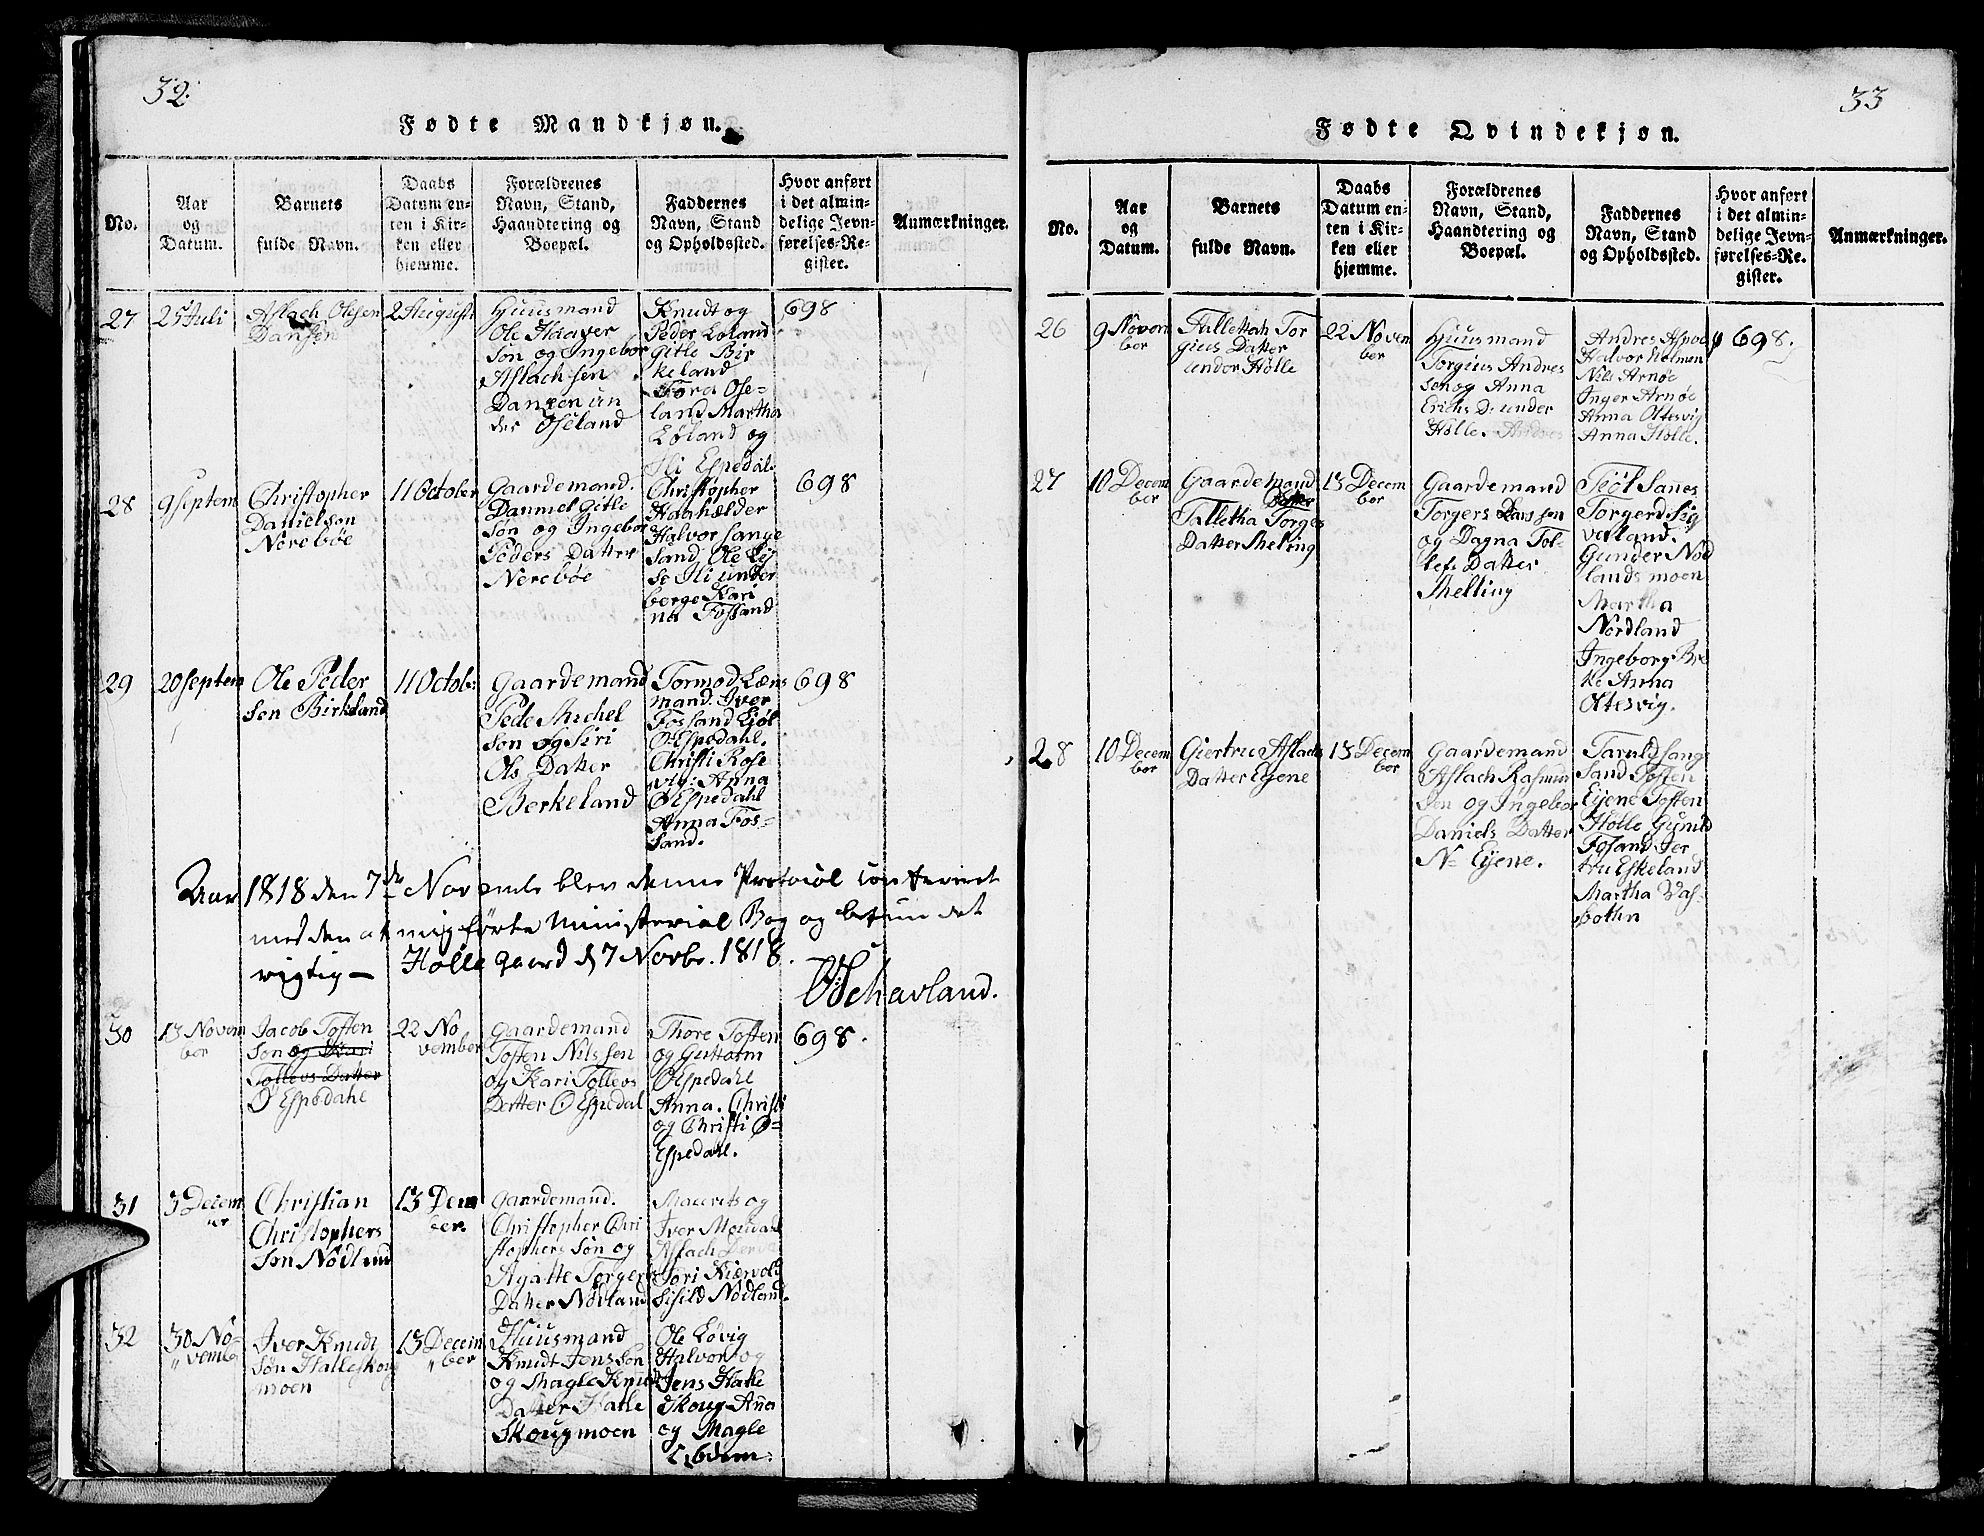 32.
Fødte Mandkjøn.
No.
Aar
og
Datum.
Barnets
fulde Navn.
Daabs
Datum en-
ten i Kir-
ken eller
hjemme.
Forældrenes
Navn, Stand,
Haandtering og
Boepæl.
Faddernes
Navn, Stand
og Opholdssted.
Hvor anført
i det almin-
delige Jevn-
førelses-Re-
gister.
Anmærkninger.
27
25 Juli
Aslach Olesen
Dansen
2 August
Huusmand
Ole Haaver
søn og Ingebor
Aslachsen
Dansen un
der Øseland
Knudt og
Peder Løland
Gitle Bir
keland
Tord Ose-
land Martha
Løland og
Sli Espedal
698
28
9 Septem
Christopher
Danielsøn
Nerebøe
11 October
Gaardemand.
Danniel Gitle
søn og Ingebor
Peders Datter
Nerebøe
Christopher
Haahælder
Halvor Sange
sand Ole Eg
se Sli under
berge Kari
na Fossand
698
29
20 Septem
Ole Peder
sen Birkeland
11 Octob:
Gaardemand
Pede Michel
søn og Siri
Ols Datter
Berkeland
Tormod Læns
mand. Iver
Fossand Liøt
ØEspedahl.
Christi Rose
vig: Anna
ØEspedahl
Anna Fos-
sand.
698
Aar 1818 den 7de Novembr blev denne Protocol confereret
med den af mig førte Ministerial Bog og befunden det
rigtig — Hølle gaard d 7 Novbr. 1818.
Schavland.
30
13 Novem
ber
Jacob Tosten
søn og Kari
Tollevs Datter
Ø Espedahl
22 No
vember
Gaardemand
Tosten Nilssen
og Kari Tollevs
Datter Ø Espedal
Thore Tosten
og Guttorm
ØEspedahl
Anna. Christi
og Christi Ø-
Espedahl.
698.
31
3 Decem
ber
Christian
Christophers
søn Nødland
13 Dem
ber.
Gaardemand.
Christopher Chri
stophers søn og
Agatte Torgers
Datter Nødland
Maurits og
Iver Moudahl
Aslach
Tori Kiervol
Sisild Nødland.
32
30 No-
vemb
Iver Knudt
søn Halleskoug
moen
13 Decem
ber
Huusmand
Knudt Jenssøn
og Magle Knud
Datter Halle
Skougmoen
Ole Løvig
Halvor og
Jens Halle
Skoug Ana
og Magle
Ibidem.
33
Fødte Qvindekjøn.
No.
Aar
og
Datum.
Barnets
fulde Navn.
Daabs
Datum en-
ten i Kir-
ken eller
hjemme.
Forældrenes
Navn, Stand,
Haandtering og
Boepæl.
Faddernes
Navn, Stand
og Opholdssted.
Hvor anført
i det almin-
delige Jevn-
førelses-Re-
gister.
Anmærkninger.
26
9 Novem
ber
Tallettah Tor
gius Datter
under Hølle
22 Novem
ber
Huusmand
Torgius Andres
søn og Anna
Erichs D under
Hølle.
Andres Aspoe
Halvor Holmen
Nils Arnøe
Inger Arnøe
Anna Oltesvig
Anna Hølle.
698.
27
10 Decem
ber
Gaardemand
Datter
Talletha Torges
Datter Melting
13 Decem
ber
Gaardemand
Torgers Larssøn
og Dagna Tol-
lefs Datter
Melling
Tiøl Sanes
Torgerd Sig
veland.
Gunder Nød
landsmoen
Martha
Nordland
Ingeborg Bre
ke Anna
Oltesvig.
28
10 Decem
ber
Giertru Aslachs
Datter Eyene
13 Decem
ber
Gaardemand
Aslach Rasmus
søn og Ingebor
Daniels Datter
N- Eyene.
Tarald Sange
sand Tosten
Eyene Tosten
Hølle Gunild
Fosand Jer
tru Eskeland
Martha Vas-
botten